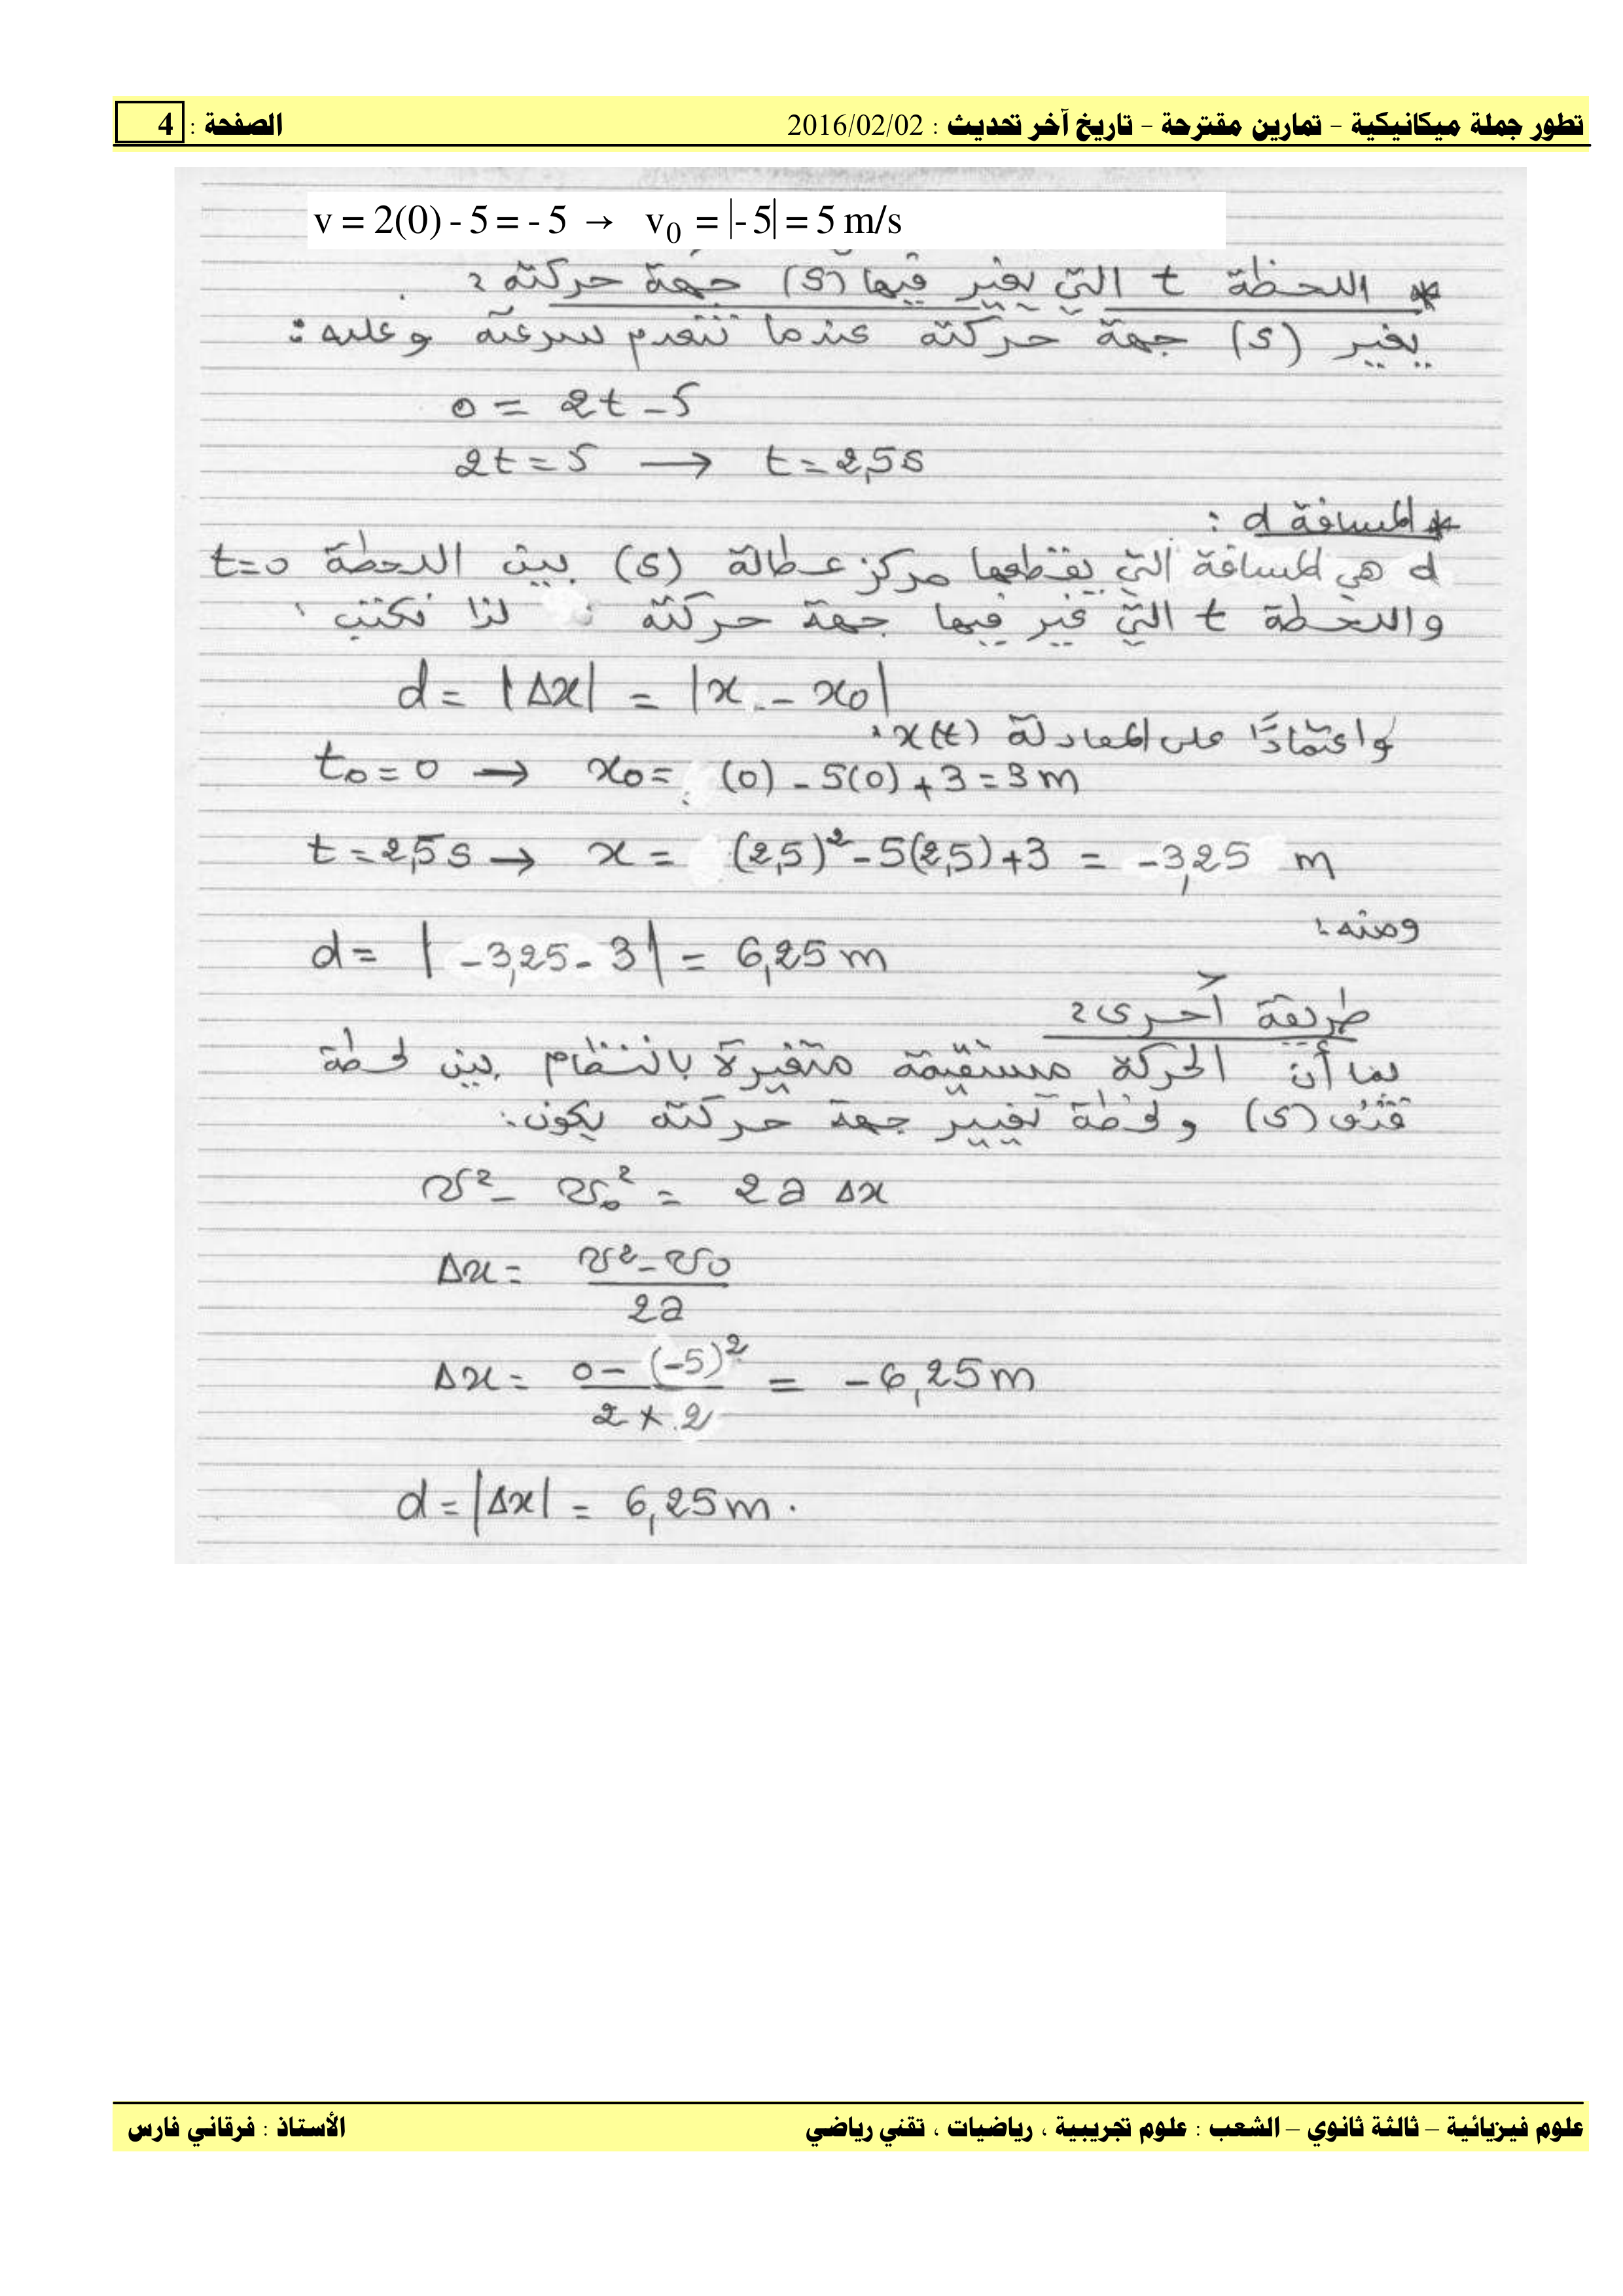 تطور جملة ميكانيكية - تمارين مقترحة - تاريخ آخر تحديث : 2016/02/02 الصفحة : 4
v = 2(0) - 5 = - 5 → v₀ = |- 5| = 5 m/s
* اللحظة t التي يغير فيها (S) جهة حركته :
يغير (S) جهة حركته عندما تنعدم سرعته وعليه :
0 = 2t - 5
2t = 5 → t = 2,5 s
* المسافة d :
d هي المسافة التي يقطعها مركز عطالة (S) بين اللحظة t=0
واللحظة t التي غير فيها جهة حركته لذا نكتب :
d = |Δx| = |x - x₀|
واعتمادًا على المعادلة x(t) :
t₀ = 0 → x₀ = (0) - 5(0) + 3 = 3 m
t = 2,5 s → x = (2,5)² - 5(2,5) + 3 = -3,25 m
ومنه :
d = |-3,25 - 3| = 6,25 m
طريقة أخرى :
بما أن الحركة مستقيمة متغيرة بانتظام بين لحظة
(S) ولحظة تغيير جهة حركته يكون :
v² - v₀² = 2a Δx
Δx = (v² - v₀)/2a
Δx = (0 - (-5)²)/(2 × 2) = -6,25 m
d = |Δx| = 6,25 m .
علوم فيزيائية – ثالثة ثانوي – الشعب : علوم تجريبية ، رياضيات ، تقني رياضي الأستاذ : فرقاني فارس